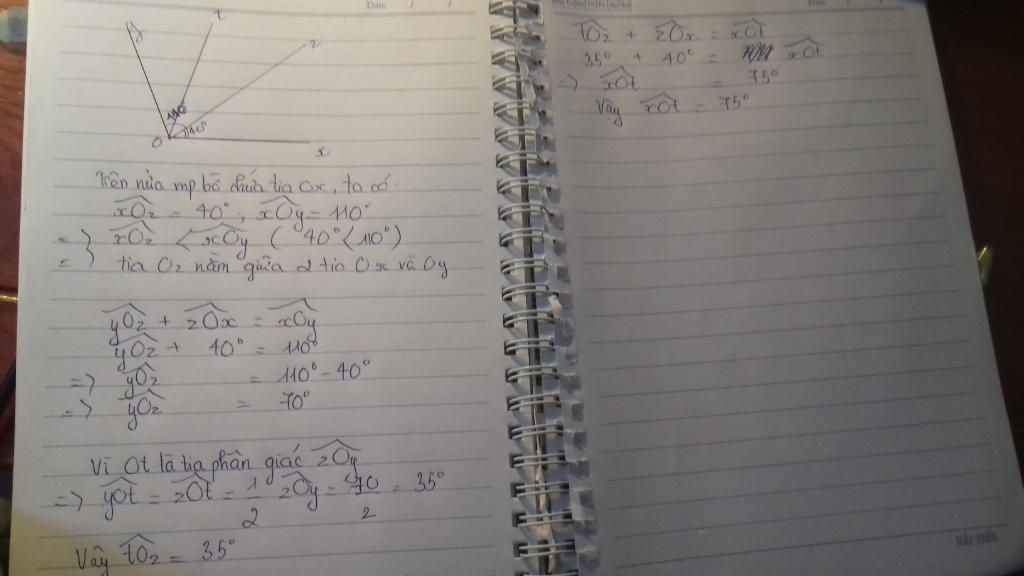 Date / /
y
t
z
110°
40°
O
x
Trên nửa mp bờ chứa tia Ox, ta có.
xOz = 40°, xOy = 110°
=> xOz < xOy ( 40° < 110°)
=> tia Oz nằm giữa 2 tia Ox và Oy
yOz + zOx = xOy
yOz + 40° = 110°
=> yOz = 110° - 40°
=> yOz = 70°
Vì Ot là tia phân giác zOy
=> yOt = zOt = 1/2 zOy = 70/2 = 35°
Vậy tOz = 35°
Date / /
tOz + zOx = xOt
35° + 40° = xOt
=> xOt = 75°
Vậy xOt = 75°
HẢI TIẾN